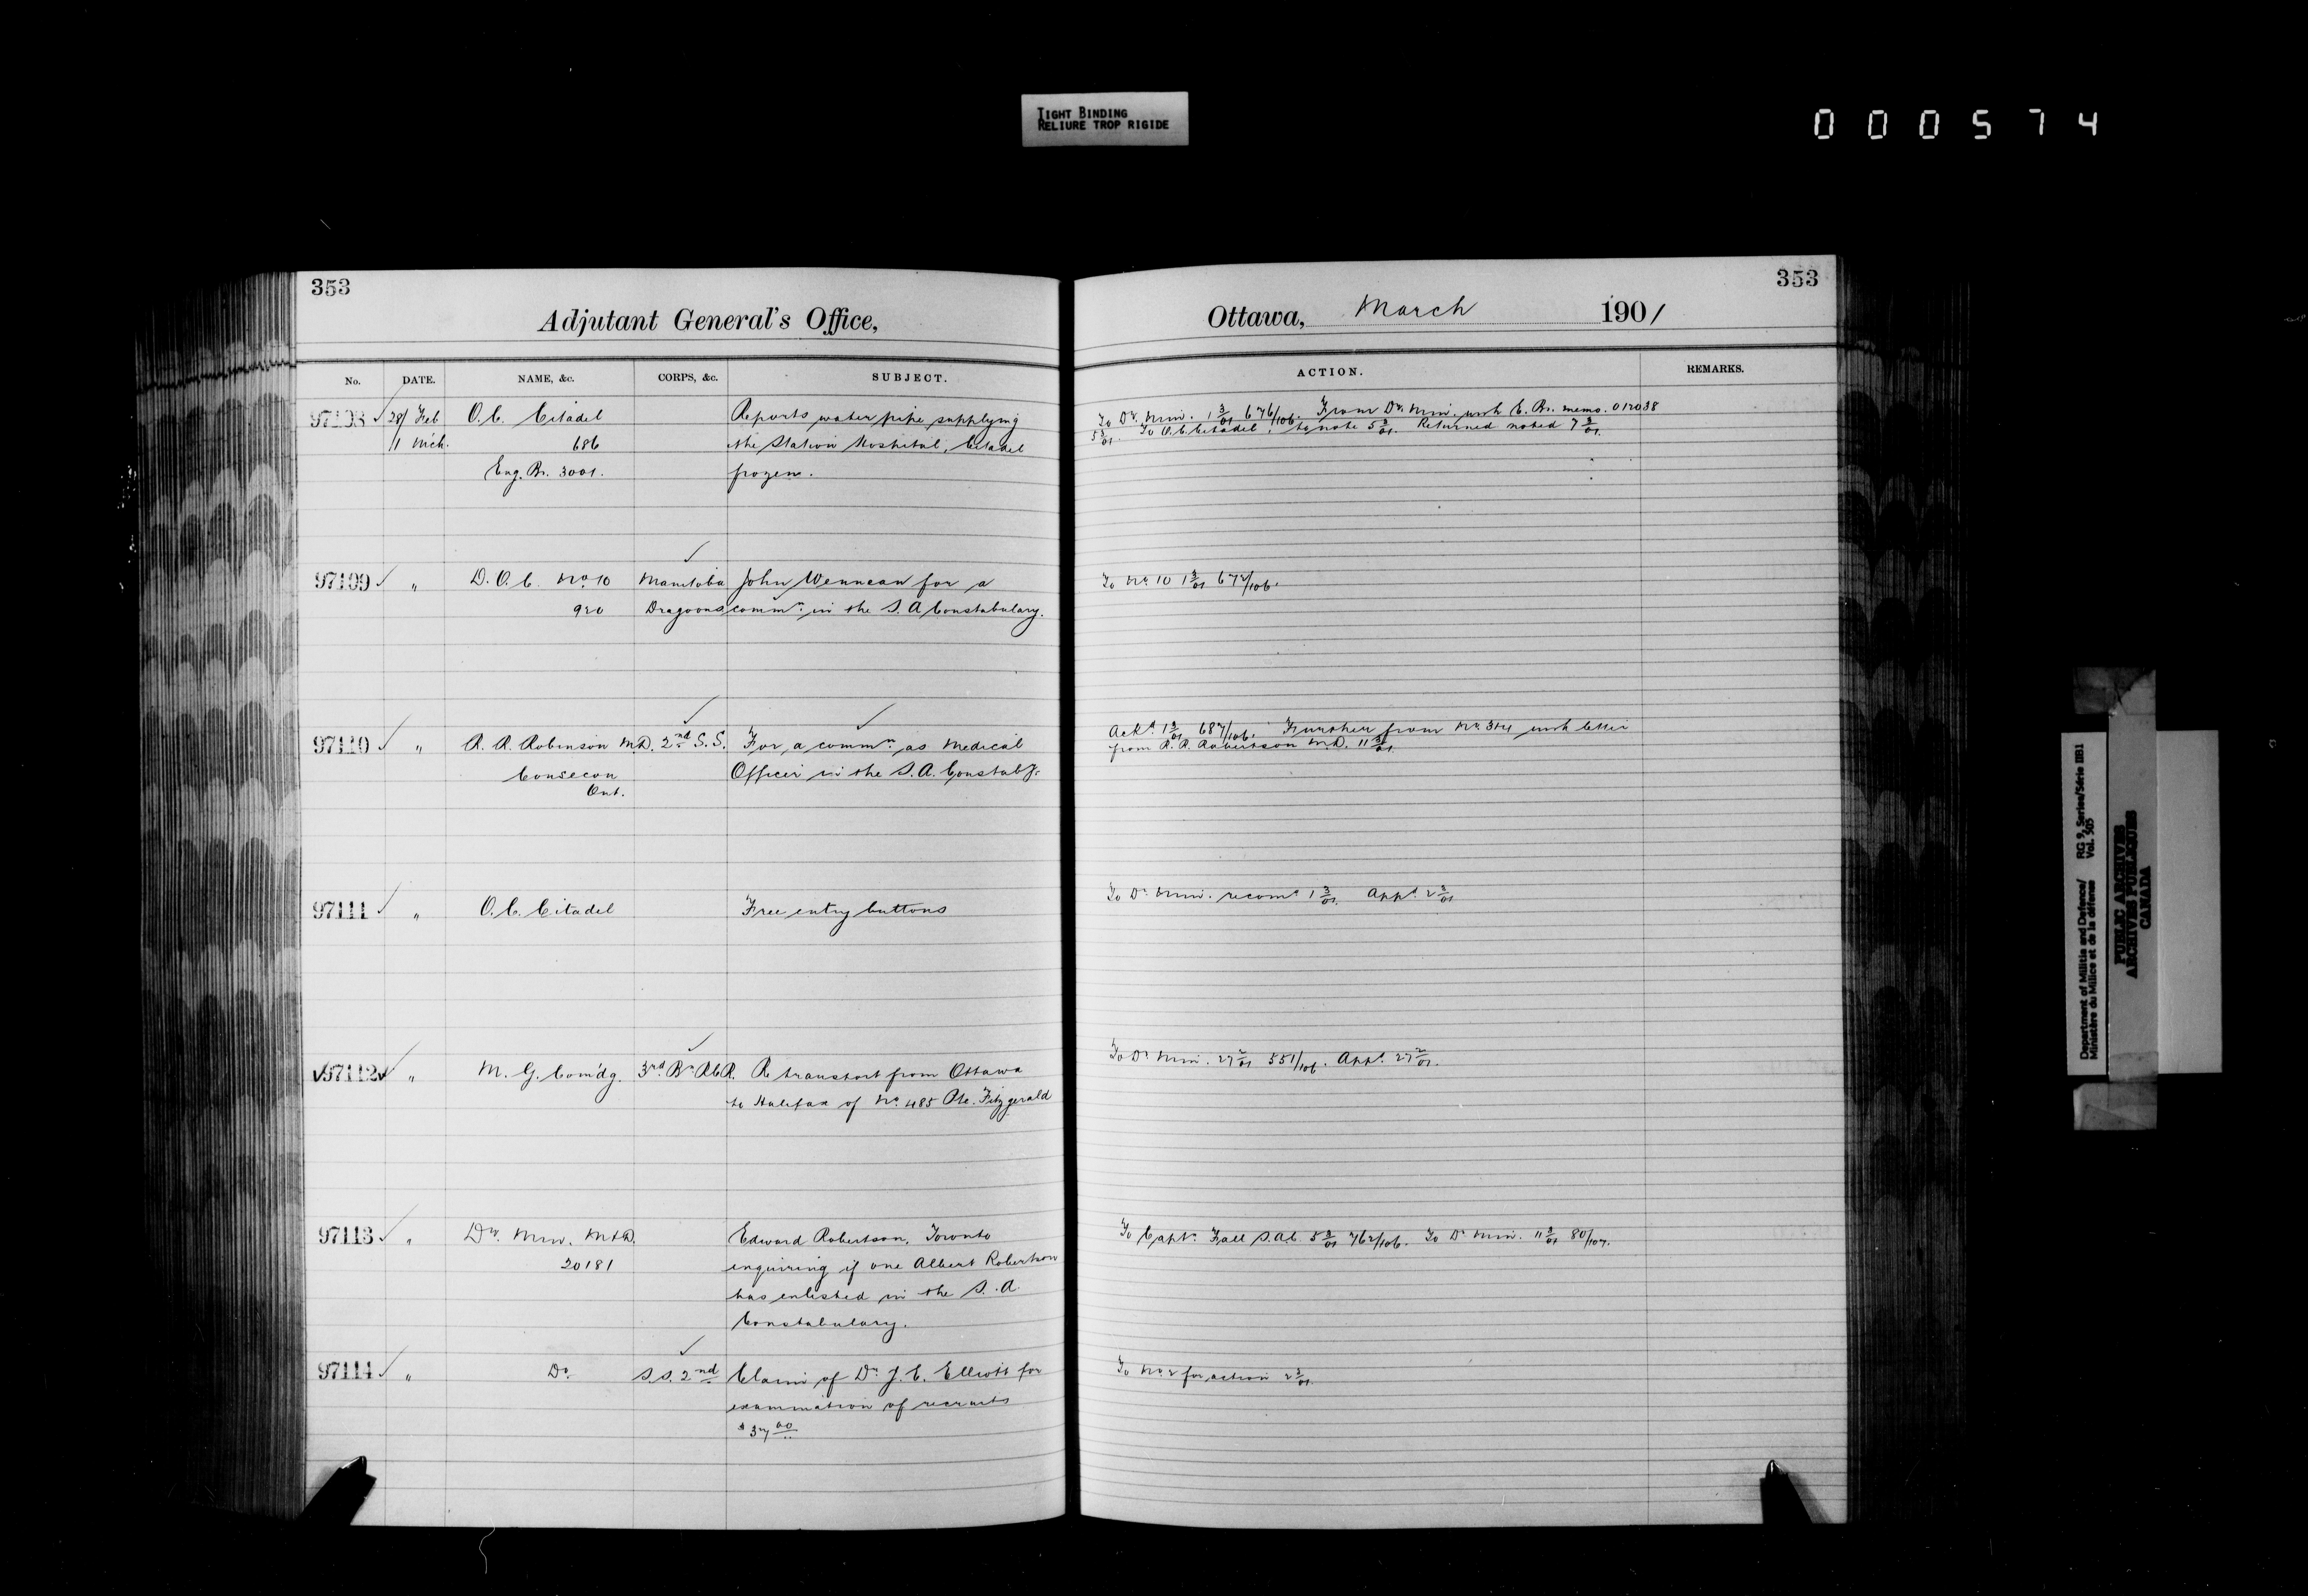 TIGHT BINDING
RELIURE TROP RIGIDE
000574
353
Adjutant General's Office,
No. DATE. NAME, &c. CORPS, &c. SUBJECT.
97108 28/ Feb O.C. Citadel Reports water pipe supplying
/1 Mch. 686 the Station Hospital, Citadel
Eng. Br. 3001. frozen.
97109 " D.O.C. No. 10 Manitoba John Wennean for a
920 Dragoons commn. in the S.A Constabulary.
97110 " R. A. Robinson M.D. 2nd S.S. For a commn. as Medical
Consecon Officer in the S.A. Constaby.
Ont.
97111 " O.C. Citadel Free entry buttons
97112 " M. G. Com'dg. 3rd Bn. R.C.R. R transport from Ottawa
to Halifax of No. 485 Pte. Fitzgerald
97113 " Dy. Min. M&D. Edward Robertson, Toronto
20181 enquiring if one Albert Robertson
has enlisted in the S.A.
Constabulary.
97114 " Do. S.S. 2nd Claim of Dr. J. C. Elliott for
examination of recruits
$37.00
353
Ottawa, March 1901
ACTION. REMARKS.
To Dy. Min. 1 3/01 676/106. From Dy. Min. with E. Br. memo. 012038
5 3/01. To O.C. Citadel, to note 5 3/01. Returned noted 7 3/01.
To No. 10 1 3/01 672/106.
Ackd. 1 3/01 687/106. Further from No. 3+4 with letter
from R. A. Robertson M.D. 11 3/01
To Dy. Min. recomd. 1 3/01. Appd. 2 3/01
To Dy. Min. 27 2/01 551/106. Appd. 27 2/01.
To Capt. Fall S.A.C. 5 3/01 762/106. To Dy. Min. 11 3/01 80/107.
To No. 2 for action 2 3/01.
Department of Militia and Defence/ RG 9, Series/Série IIB1
Ministère du Milice et de la défense Vol. 505
PUBLIC ARCHIVES
ARCHIVES PUBLIQUES
CANADA